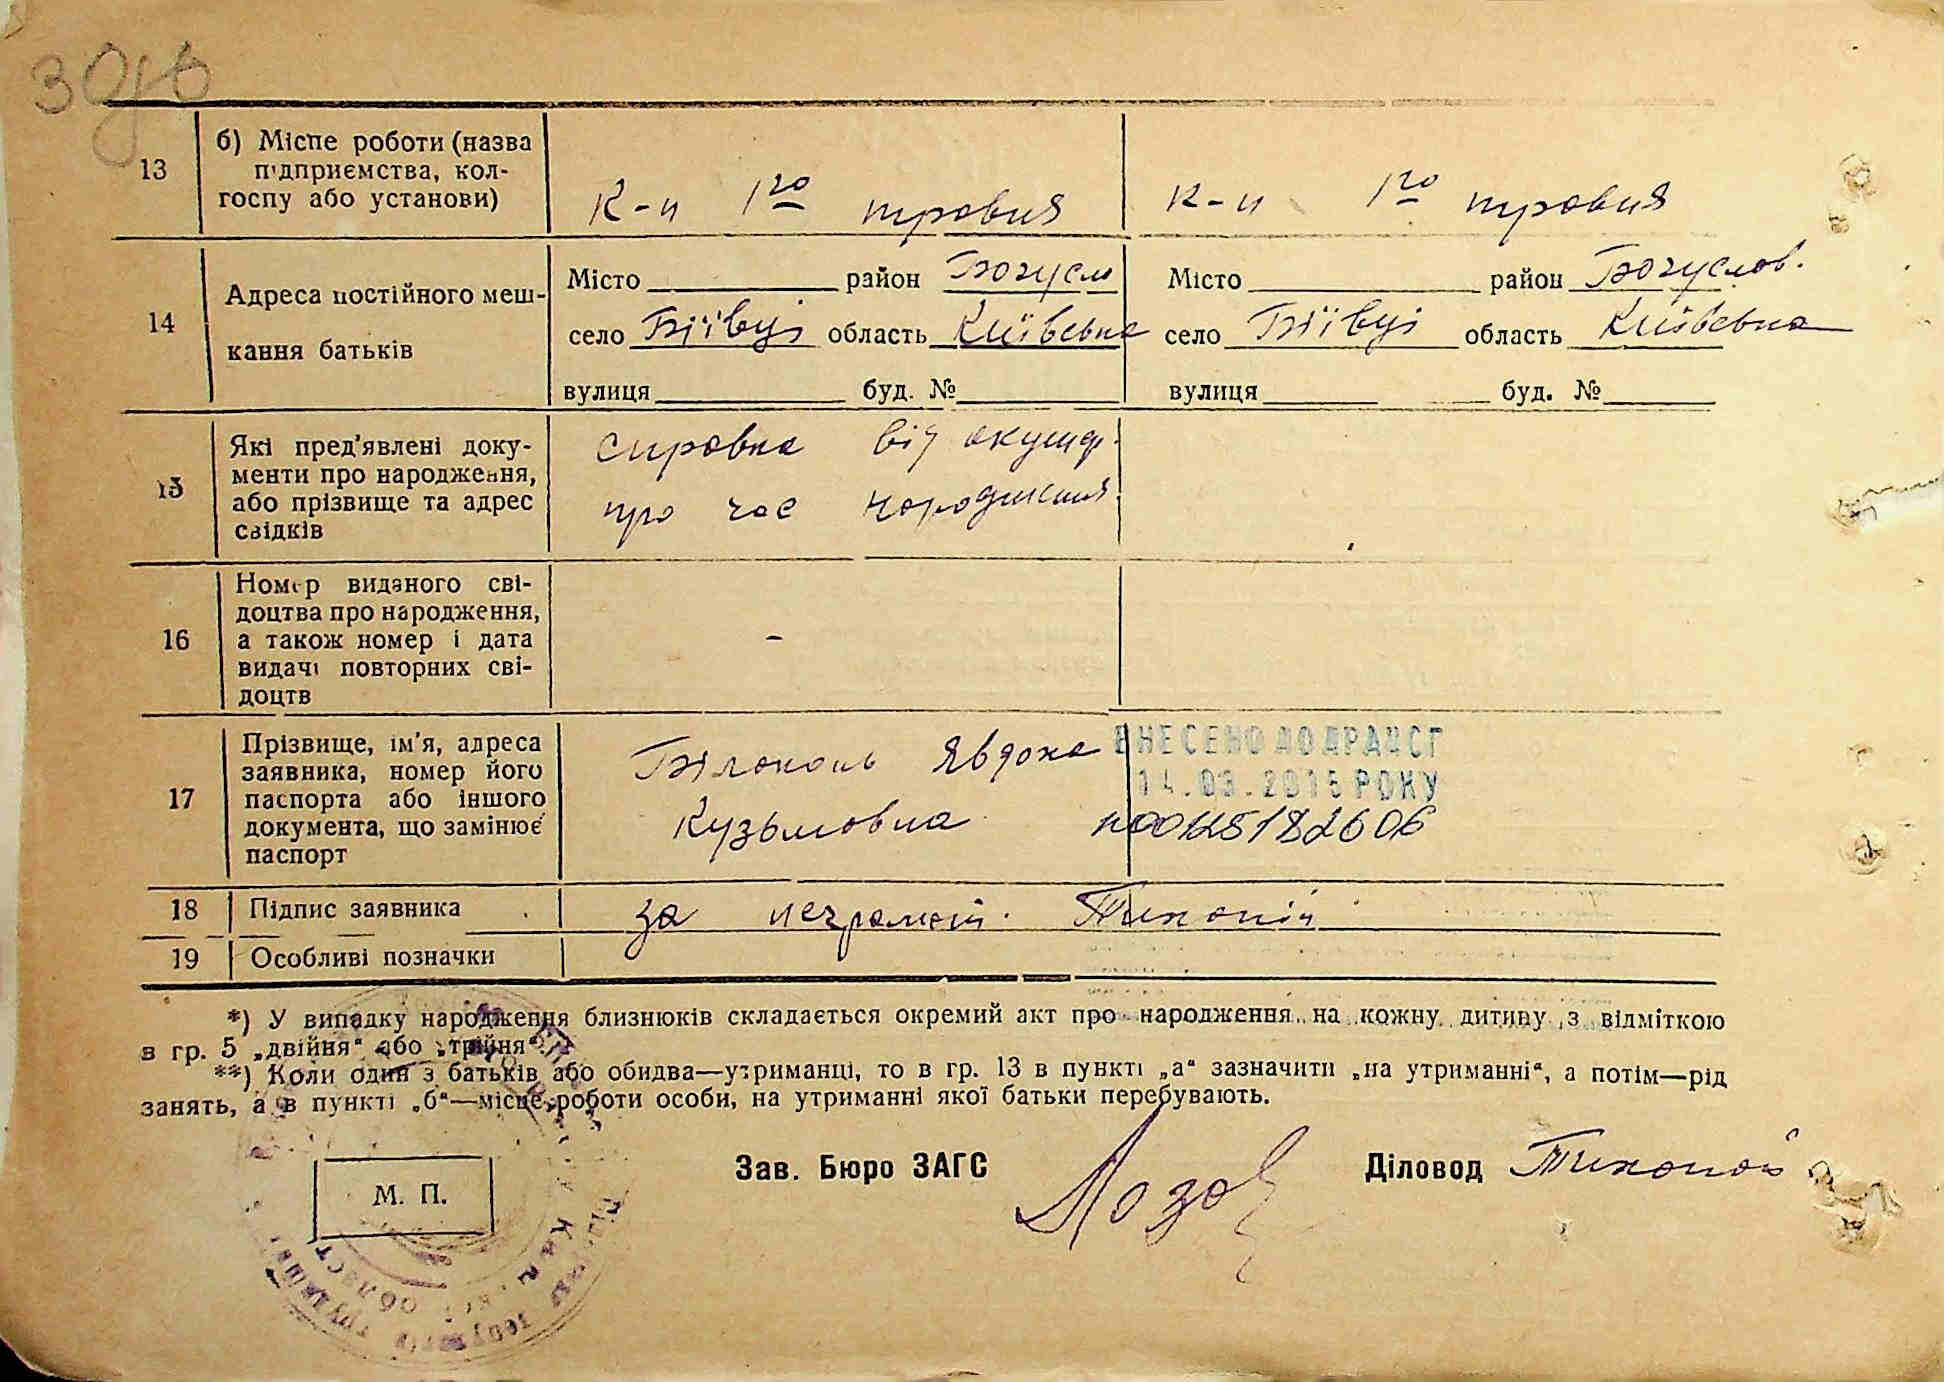 30
13
б) Місце роботи (назва
підприємства, кол-
госпу або установи)
К-п 1го травня
К-п 1го травня
14
Адреса постійного меш-
кання батьків
Місто район Богусл
село Біївці область Київська
вулиця буд. №
Місто район Богуслов.
село Біївці область Київська
вулиця буд. №
15
Які пред'явлені доку-
менти про народження,
або прізвище та адрес
свідків
справка від акушер.
про час народження
16
Номер виданого сві-
доцтва про народження,
а також номер і дата
видачі повторних сві-
доцтв
-
17
Прізвище, ім'я, адреса
заявника, номер його
паспорта або іншого
документа, що замінює
паспорт
Білоконь Явдоха
Кузьмовна
ВНЕСЕНО ДО ДРАЦСГ
14.03.2015 РОКУ
18
Підпис заявника
за неграмот. Тихоній
19
Особливі позначки
*) У випадку народження близнюків складається окремий акт про народження на кожну дитину з відміткою
в гр. 5 „двійня“ або „трійня“.
**) Коли один з батьків або обидва—утриманці, то в гр. 13 в пункті „а“ зазначити „на утриманні“, а потім—рід
занять, а в пункті „б“—місце роботи особи, на утриманні якої батьки перебувають.
М. П.
Зав. Бюро ЗАГС
Діловод